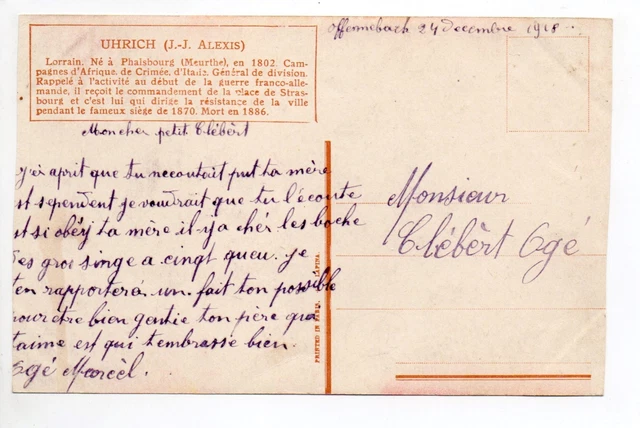 Offennebach 24 decembre 1918
UHRICH (J.-J. ALEXIS)
Lorrain. Né à Phalsbourg (Meurthe), en 1802. Cam-
pagnes d'Afrique, de Crimée, d'Italie. Général de division.
Rappelé à l'activité au début de la guerre franco-alle-
mande, il reçoit le commandement de la place de Stras-
bourg et c'est lui qui dirige la résistance de la ville
pendant le fameux siège de 1870. Mort en 1886.
Moncher petit Clébèrt
j'ai aprit que tu necoutait put ta mère
est sependent je voudrait que tu l'écoute
est si obéij ta mère il y a chér les boche
des gros singe a cingt queu. je
t'en rapporterá un. fait ton possible
pour etre bien gentie ton père qui
t'aime est qui t'embrasse bien.
Ogé Marcèl.
PRINTED IN PARIS. LAPINA.
Monsieur
Clébèrt Ogé